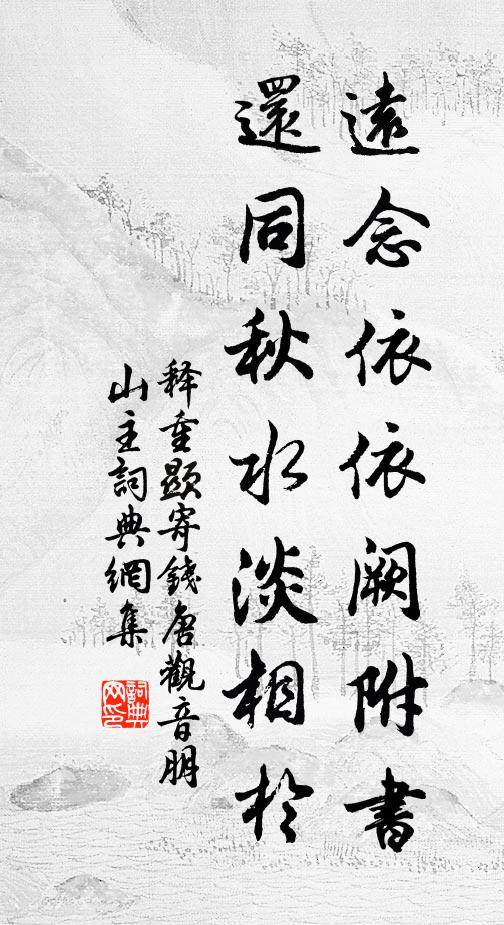 遠念依依闕附書
還同秋水淡相於
释重顯寄錢唐觀音朋
山主詞典網集
詞典
网印